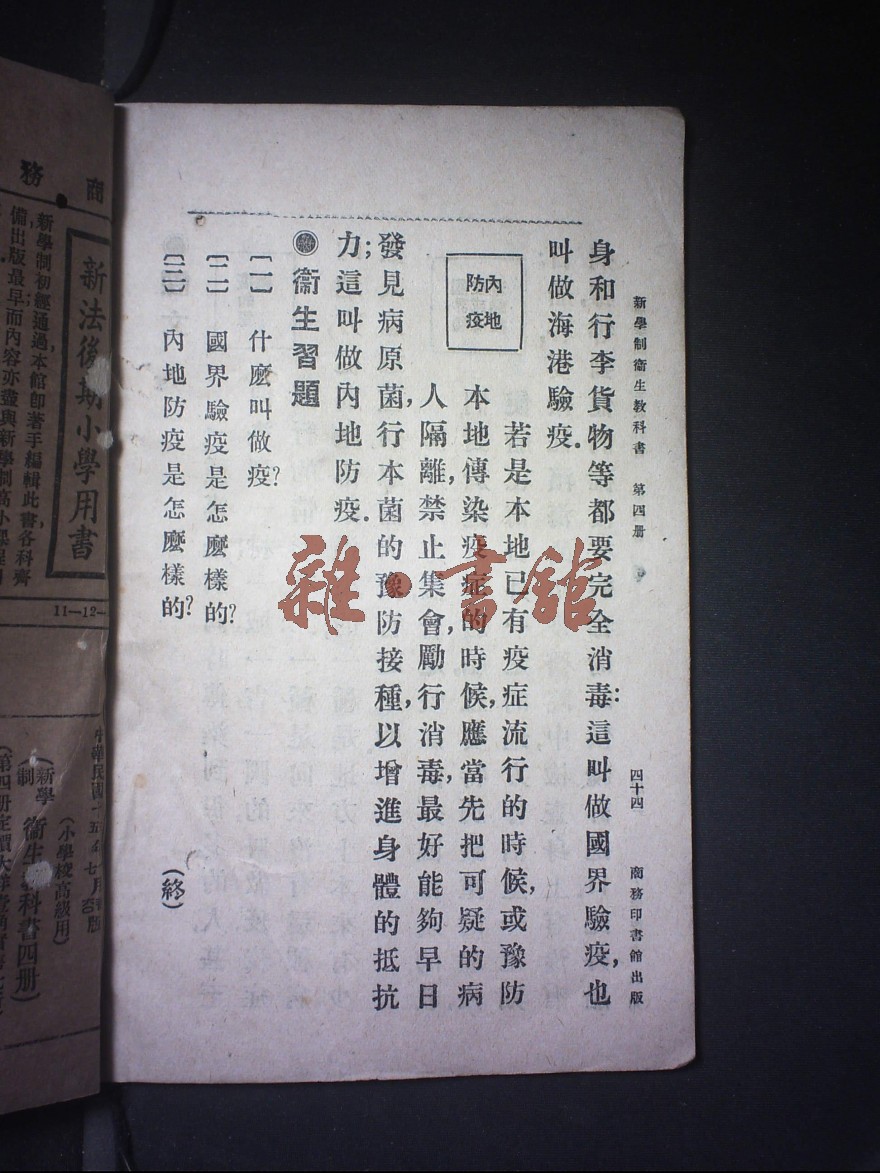 新學制衞生教科書 第四册 四十四 商務印書館出版
身和行李貨物等都要完全消毒:這叫做國界驗疫,也
叫做海港驗疫.
內地
防疫
若是本地已有疫症流行的時候,或豫防
本地傳染疫症的時候,應當先把可疑的病
人隔離,禁止集會,勵行消毒,最好能夠早日
發見病原菌,行本菌的豫防接種,以增進身體的抵抗
力;這叫做內地防疫.
衞生習題
〔一〕 什麼叫做疫?
〔二〕 國界驗疫是怎麼樣的?
〔三〕 內地防疫是怎麼樣的?
(終)
雜·書館
商務
新法後期小學用書
新學制初經通過,本館即著手編輯此書,各科齊
備出版最早而內容亦盡與新學制高小
11—12—
中華民國
(小學校高級用)
(新學制 衞生教科書四册)
(第四册定價大洋